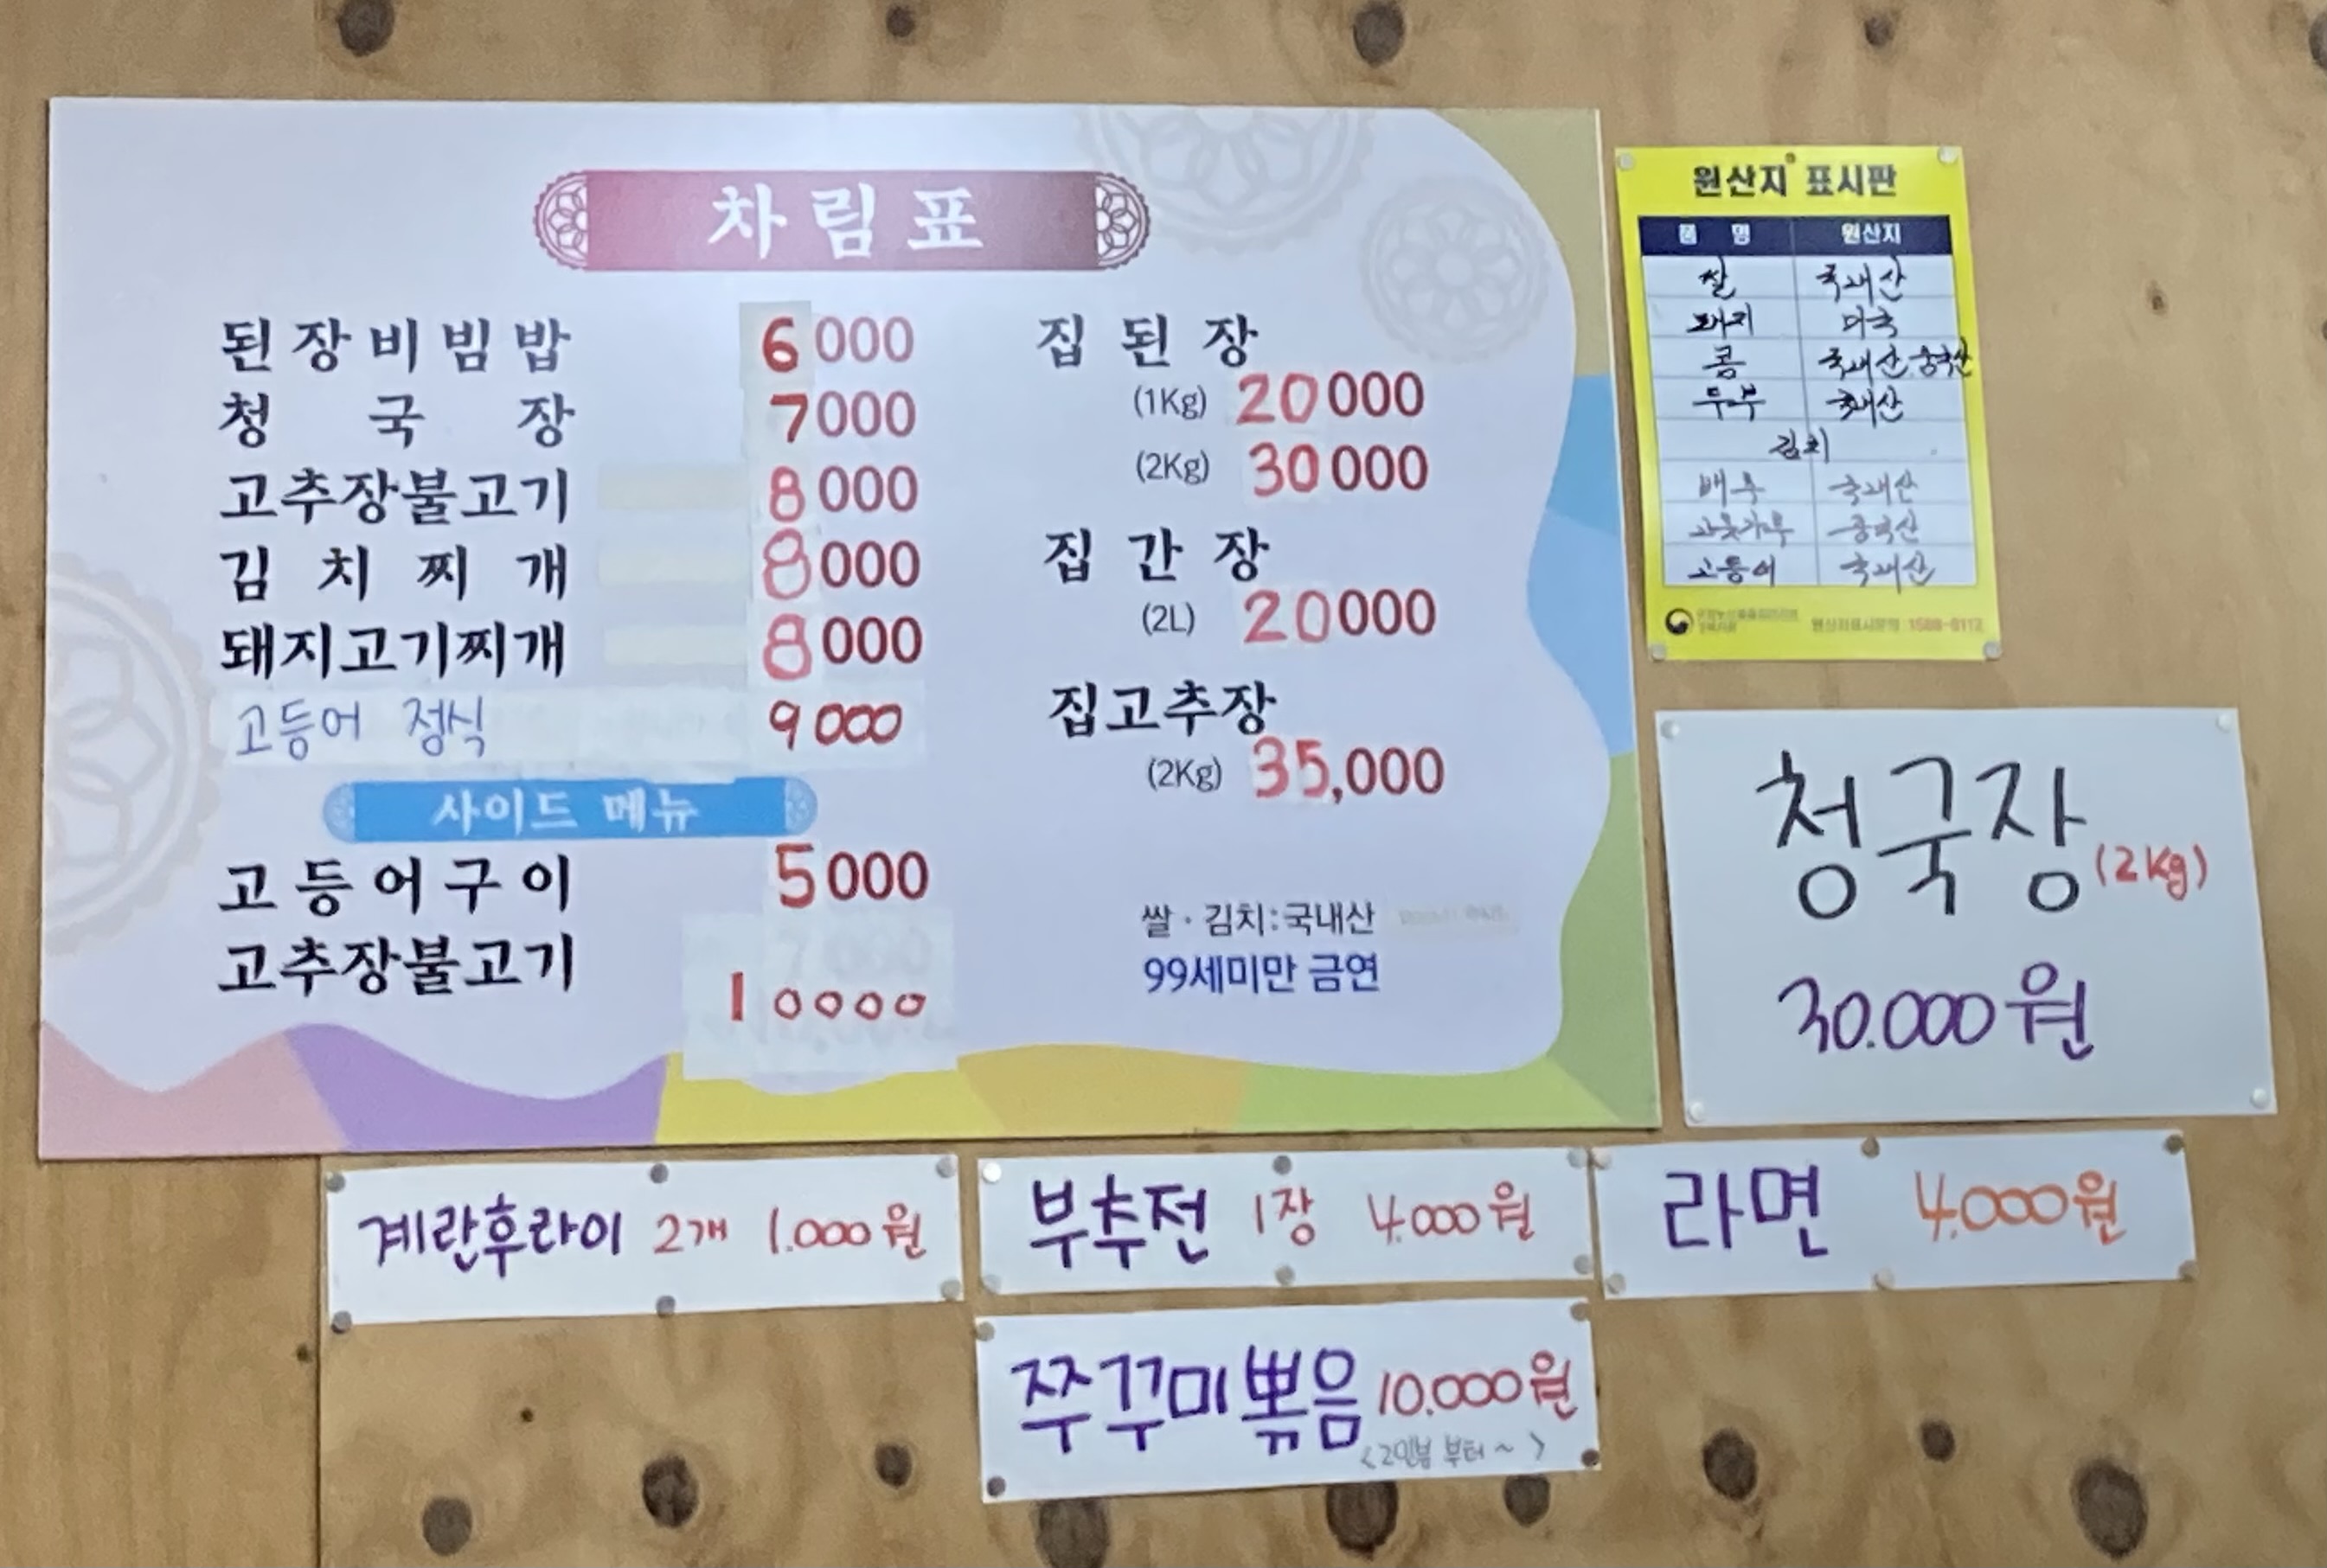 차림표
된장비빔밥 6000
청국장 7000
고추장불고기 8000
김치찌개 8000
돼지고기찌개 8000
고등어 정식 9000
사이드 메뉴
고등어구이 5000
고추장불고기 10000
집된장
(1Kg) 20000
(2Kg) 30000
집간장
(2L) 20000
집고추장
(2Kg) 35,000
쌀·김치:국내산
99세미만 금연
원산지 표시판
품 명 원산지
쌀 국내산
돼지 미국
콩 국내산 중국산
두부 국내산
김치
배추 국내산
고춧가루 중국산
고등어 국내산
원산지표시문의 1588-8112
청국장 (2Kg)
30.000원
계란후라이 2개 1.000원
부추전 1장 4.000원
라면 4.000원
쭈꾸미볶음 10.000원
<2인분 부터~>